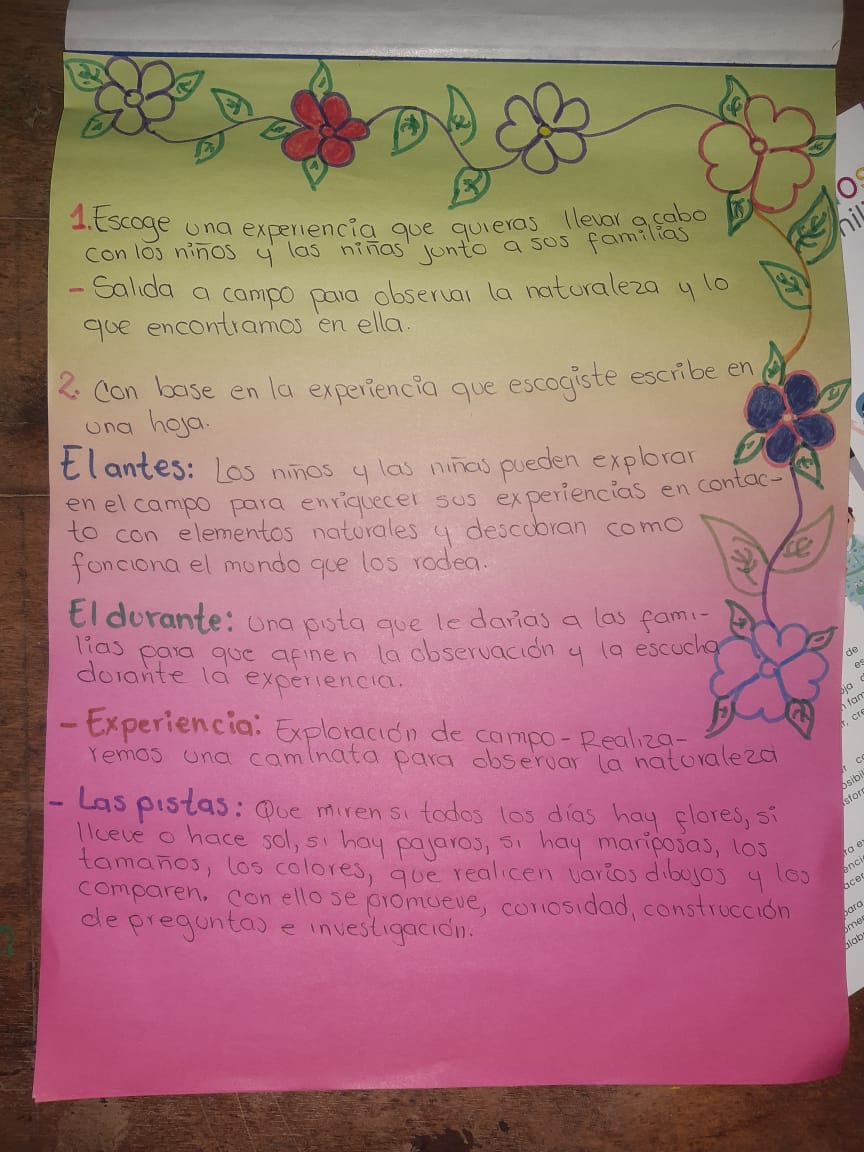 1. Escoge una experiencia que quieras llevar a cabo
con los niños y las niñas junto a sus familias
- Salida a campo para observar la naturaleza y lo
que encontramos en ella.
2. Con base en la experiencia que escogiste escribe en
una hoja.
El antes: Los niños y las niñas pueden explorar
en el campo para enriquecer sus experiencias en contac-
to con elementos naturales y descubran como
funciona el mundo que los rodea.
El durante: una pista que le darias a las fami-
lias para que afinen la observación y la escucha
durante la experiencia.
- Experiencia: Exploración de campo - Realiza-
remos una caminata para observar la naturaleza
- Las pistas: Que miren si todos los días hay flores, si
llueve o hace sol, si hay pajaros, si hay mariposas, los
tamaños, los colores, que realicen varios dibujos y los
comparen. con ello se promueve, curiosidad, construcción
de preguntas e investigación.